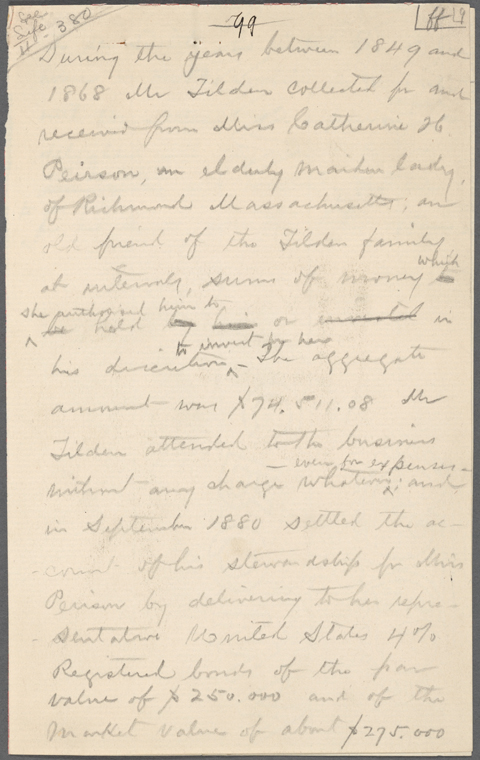 See
Life
II - 380
99
ff 9
During the years between 1849 and
1868 Mr Tilden collected for and
received from Miss Catherine H.
Peirson, an elderly maiden lady,
of Richmond Massachusetts, an
old friend of the Tilden family
at intervals, sums of money which
she authorized him to
hold or in
to invest for her
his discretion - The aggregate
amount was $74.511.08 Mr
Tilden attended to the business
- even for expenses -
without any charge whatever; and
in September 1880 settled the ac-
-count of his stewardship for Miss
Peirson by delivering to her repre-
-sentative United States 4%
Registered bonds of the par
value of $250.000 and of the
Market value of about $275.000